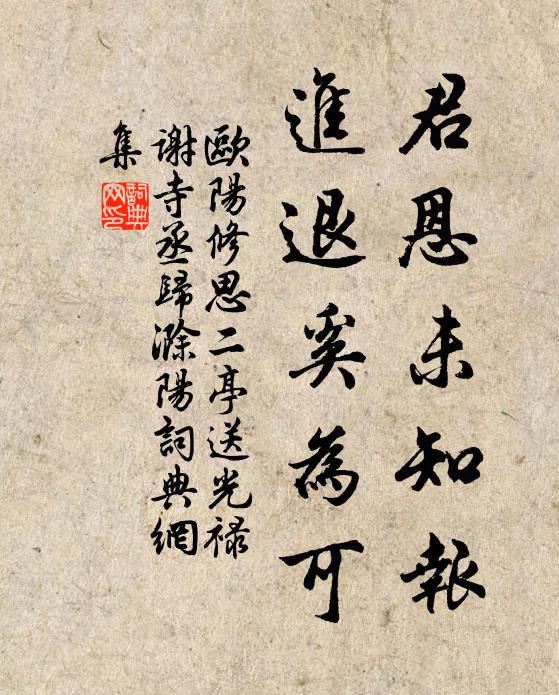 君恩未知報
進退奚為可
歐陽修思二亭送光祿
謝寺丞歸滁陽詞典網
集
詞典
网印